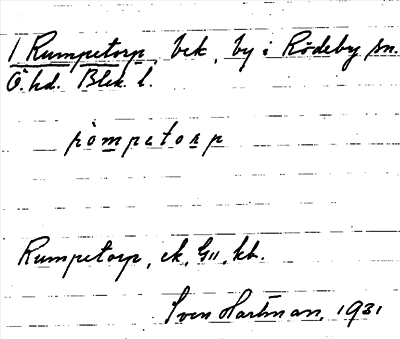 1 Rumpetorp, bek, by i Rödeby sn.
Ö. hd. Blek. l.
Rumpetorp, ek, G11, kb.
Sven Hartman, 1931